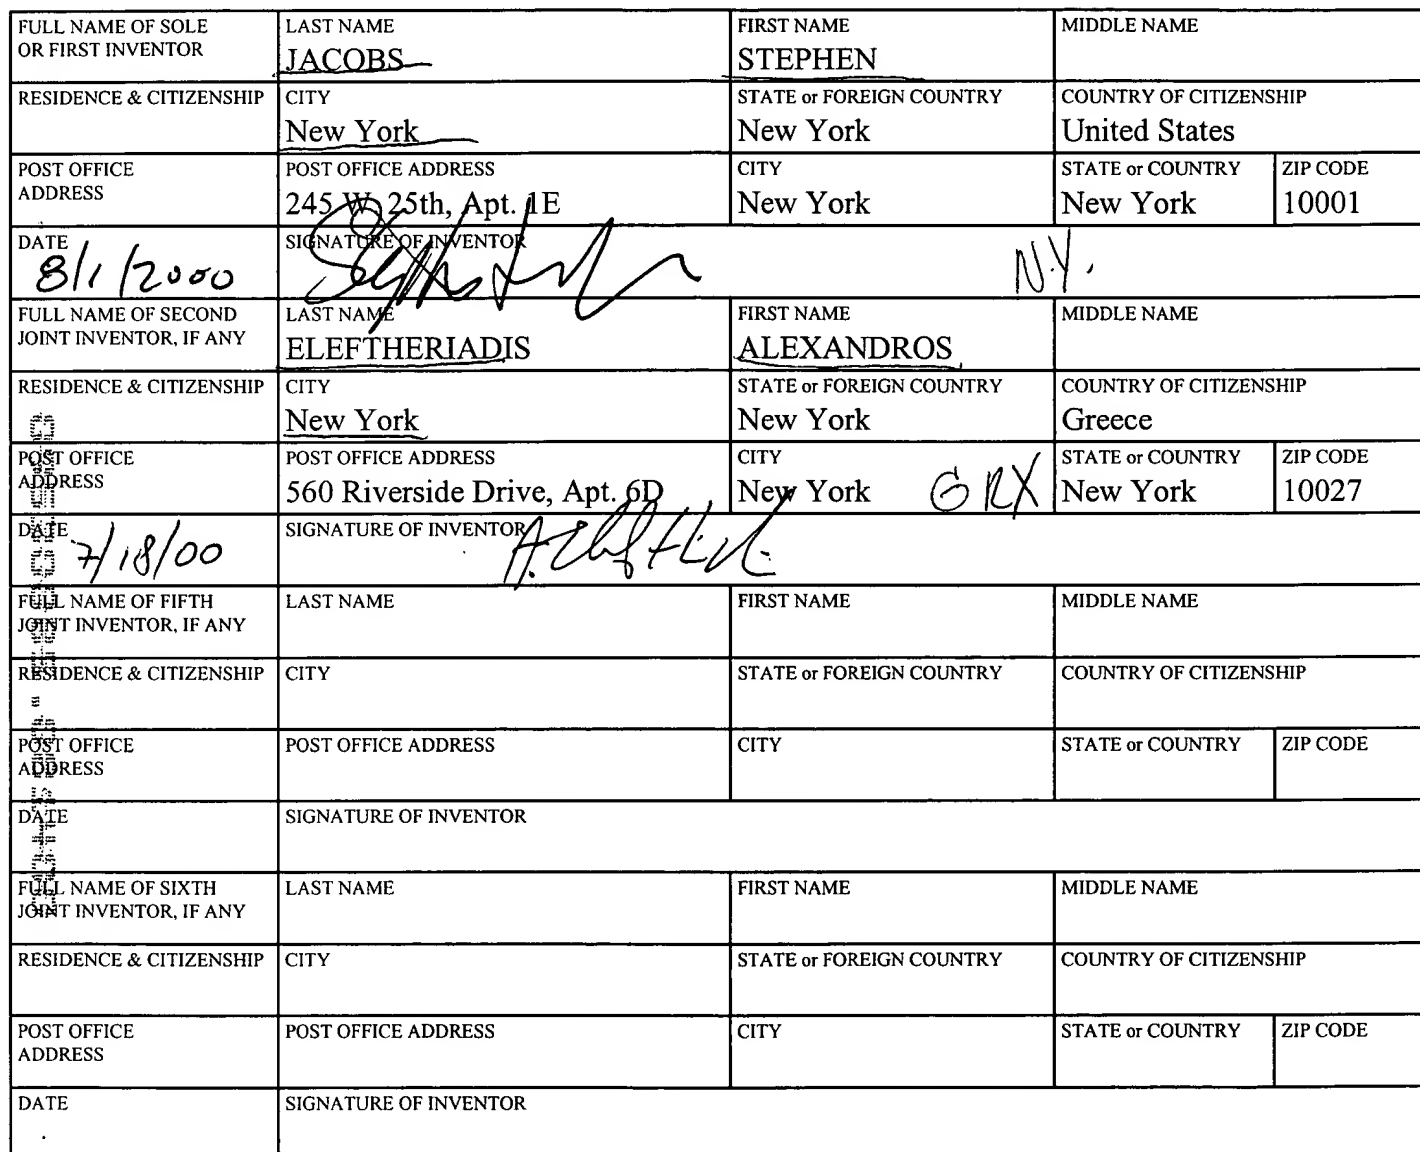 FULL NAME OF SOLE OR FIRST INVENTOR LAST NAME JACOBS FIRST NAME STEPHEN MIDDLE NAME
RESIDENCE & CITIZENSHIP CITY New York STATE or FOREIGN COUNTRY New York COUNTRY OF CITIZENSHIP United States
POST OFFICE ADDRESS POST OFFICE ADDRESS 245 W. 25th, Apt. 1E CITY New York STATE or COUNTRY New York ZIP CODE 10001
DATE 8/1/2000 SIGNATURE OF INVENTOR N.Y.
FULL NAME OF SECOND JOINT INVENTOR, IF ANY LAST NAME ELEFTHERIADIS FIRST NAME ALEXANDROS MIDDLE NAME
RESIDENCE & CITIZENSHIP CITY New York STATE or FOREIGN COUNTRY New York COUNTRY OF CITIZENSHIP Greece
POST OFFICE ADDRESS POST OFFICE ADDRESS 560 Riverside Drive, Apt. 6D CITY New York GRX STATE or COUNTRY New York ZIP CODE 10027
DATE 7/18/00 SIGNATURE OF INVENTOR
FULL NAME OF FIFTH JOINT INVENTOR, IF ANY LAST NAME FIRST NAME MIDDLE NAME
RESIDENCE & CITIZENSHIP CITY STATE or FOREIGN COUNTRY COUNTRY OF CITIZENSHIP
POST OFFICE ADDRESS POST OFFICE ADDRESS CITY STATE or COUNTRY ZIP CODE
DATE SIGNATURE OF INVENTOR
FULL NAME OF SIXTH JOINT INVENTOR, IF ANY LAST NAME FIRST NAME MIDDLE NAME
RESIDENCE & CITIZENSHIP CITY STATE or FOREIGN COUNTRY COUNTRY OF CITIZENSHIP
POST OFFICE ADDRESS POST OFFICE ADDRESS CITY STATE or COUNTRY ZIP CODE
DATE SIGNATURE OF INVENTOR